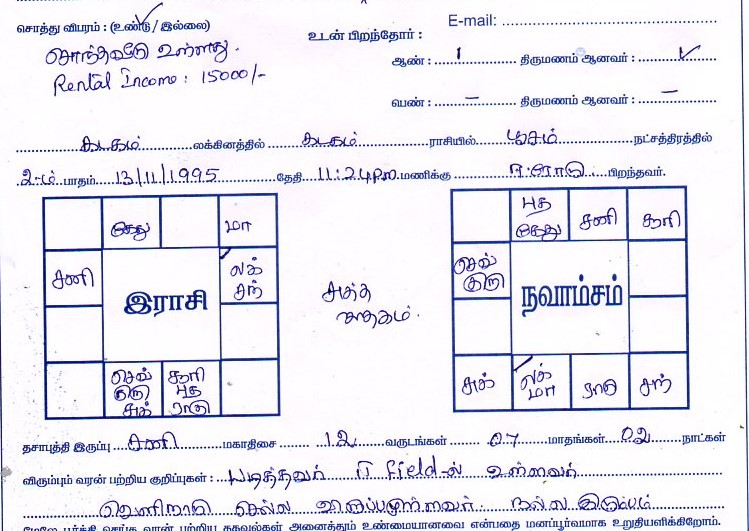 சொத்து விபரம் : (உண்டு / இல்லை)
E-mail:
சொந்தவீடு உள்ளது.
உடன் பிறந்தோர் :
Rental Income : 15000/-
ஆண் : 1 திருமணம் ஆனவர் : ✓
பெண் : – திருமணம் ஆனவர் : –
கடகம் லக்கினத்தில் கடகம் ராசியில் பூசம் நட்சத்திரத்தில்
2-ம் பாதம் 13/11/1995 தேதி 11:24 P.m. மணிக்கு ஈரோடு பிறந்தவர்.
கேது மா
சனி லக் சந்
இராசி
செவ் குரு சுக் சூரி புத ராகு
சுத்த ஜாதகம்.
புத கேது சனி சூரி
செவ் குரு
நவாம்சம்
சுக் லக் மா ராகு சந்
தசாபுத்தி இருப்பு சனி மகாதிசை 12 வருடங்கள் 07 மாதங்கள் 02 நாட்கள்
விரும்பும் வரன் பற்றிய குறிப்புகள் : படித்தவர் IT field-ல் உள்ளவர்
வெளிநாடு செல்ல விருப்பமுள்ளவர் நல்ல குடும்பம்
மேலே பூர்த்தி செய்த வரன் பற்றிய தகவல்கள் அனைத்தும் உண்மையானவை என்பதை மனப்பூர்வமாக உறுதியளிக்கிறோம்.